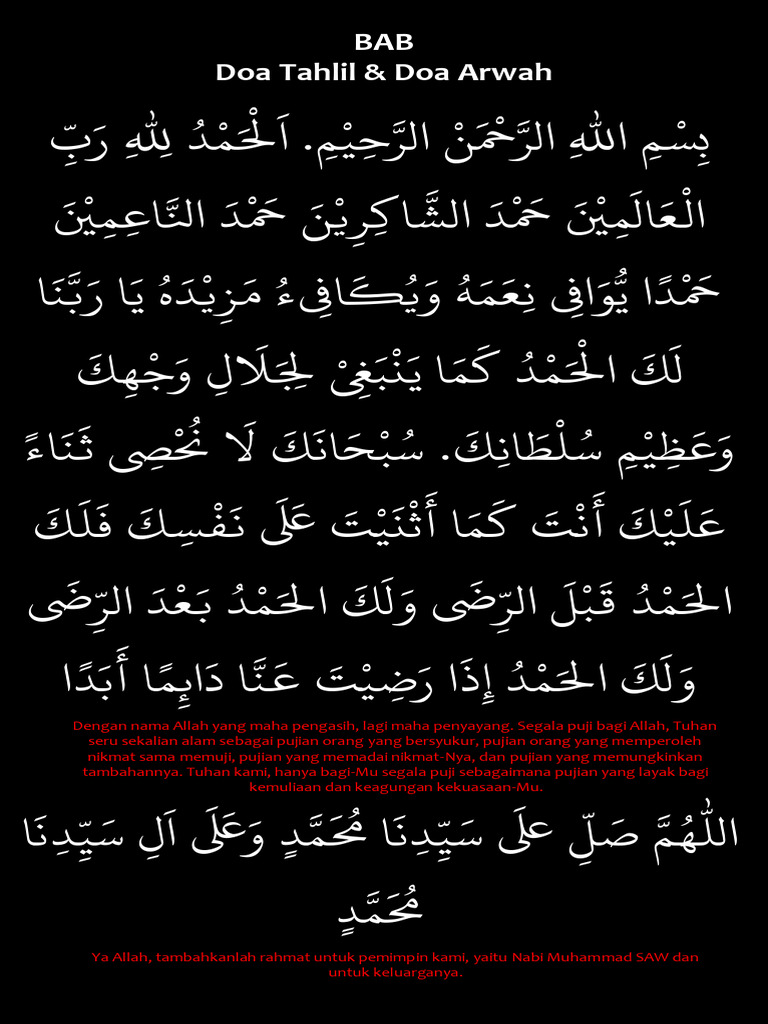 BAB
Doa Tahlil & Doa Arwah
بِسْمِ اللهِ الرَّحْمَنْ الرَّحِيْمِ. اَلْحَمْدُ لِلهِ رَبِّ
الْعَالَمِيْنَ حَمْدَ الشَّاكِرِيْنَ حَمْدَ النَّاعِمِيْنَ
حَمْدًا يُّوَافِى نِعَمَهُ وَيُكَافِىءُ مَزِيْدَهُ يَا رَبَّنَا
لَكَ الْحَمْدُ كَمَا يَنْبَغِىْ لِجَلَالِ وَجْهِكَ
وَعَظِيْمِ سُلْطَانِكَ. سُبْحَانَكَ لَا نُحْصِى ثَنَاءً
عَلَيْكَ أَنْتَ كَمَا أَثْنَيْتَ عَلَى نَفْسِكَ فَلَكَ
الحَمْدُ قَبْلَ الرِّضَى وَلَكَ الحَمْدُ بَعْدَ الرِّضَى
وَلَكَ الحَمْدُ إِذَا رَضِيْتَ عَنَّا دَائِمًا أَبَدًا
Dengan nama Allah yang maha pengasih, lagi maha penyayang. Segala puji bagi Allah, Tuhan
seru sekalian alam sebagai pujian orang yang bersyukur, pujian orang yang memperoleh
nikmat sama memuji, pujian yang memadai nikmat-Nya, dan pujian yang memungkinkan
tambahannya. Tuhan kami, hanya bagi-Mu segala puji sebagaimana pujian yang layak bagi
kemuliaan dan keagungan kekuasaan-Mu.
اللّٰهُمَّ صَلِّ علَى سَيِّدِنَا مُحَمَّدٍ وَعَلَى اَلِ سَيِّدِنَا
مُحَمَّدٍ
Ya Allah, tambahkanlah rahmat untuk pemimpin kami, yaitu Nabi Muhammad SAW dan
untuk keluarganya.